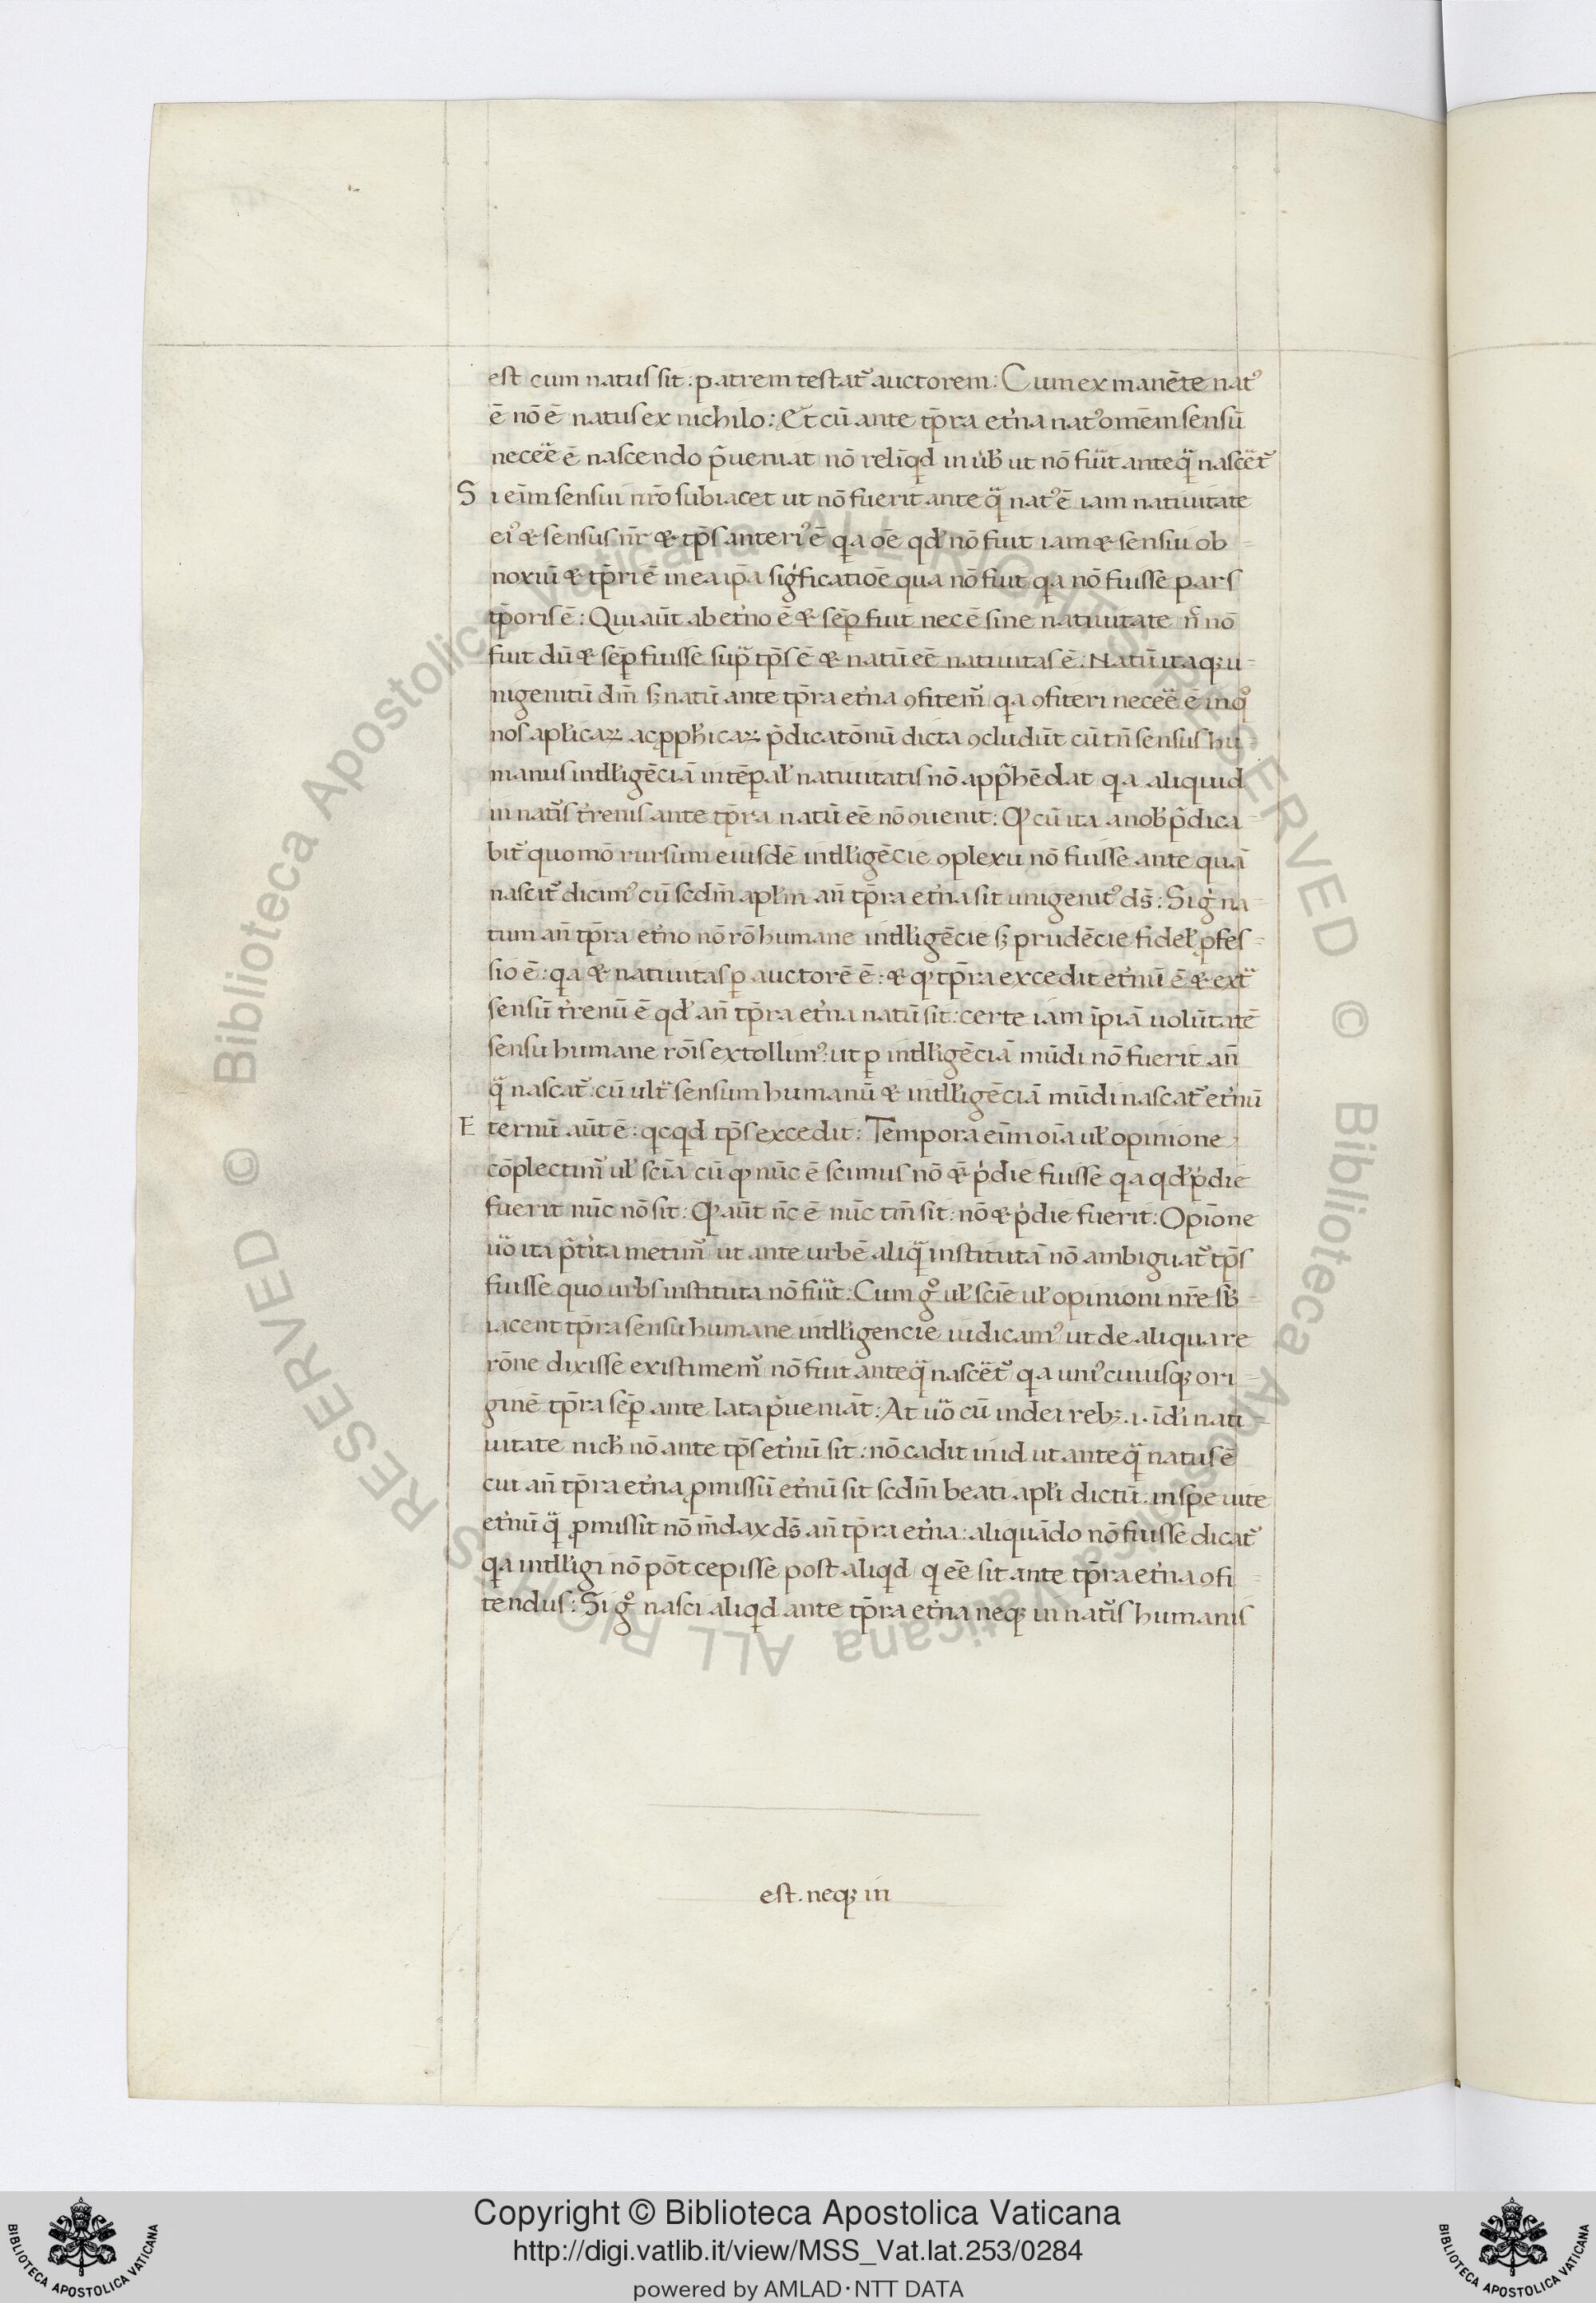 est cum natus sit: patrem testat᷑ auctorem: Cum ex manēte natꝰ
ē nō ē natus ex nichilo: Et cū ante tp̄ra et̓na natꝰ omēm sensū
necee̋ ē nascendo p̄ueniat nō relīqd in u̓b̓ ut nō fuit anteq̃ nascet᷑
Si eīm sensui nr̄o subiacet ut nō fuerit ante q̃ natꝰ ē iam natiuitate
eiꝰ & sensus nr̄ & tp̄s anteriꝰ ē qa oē qd̓ nō fuit iam & sensui ob-
noxiū & tp̄ri ē in ea ip̄a sig̓ficatiōe qua nō fuit qa nō fuisse pars
tp̄oris ē: Qui aūt ab et̓no ē & sēp fuit nec ē sine natiuitate n̄ nō
fuit dū & sēp fuisse sup̃ tp̄s ē & natū eē natiuitas ē: Natū itaqꝫ u-
nigenitū dm̄ sꝫ natū ante tp̄ra et̓na ꝯfitem᷑ qa ꝯfiteri necee̋ ē in qͦ
nos apl̓icaꝝ ac ꝓph̓icaꝝ p̄dicatōnū dicta ꝯcludūt cū tn̄ sensus hu-
manus intll̓igēciā intēꝑal̓ natiuitatis nō app̄hēdat qa aliquid
in nat᷑is t̓renis ante tp̄ra natū eē nō ꝯuenit: Qꝫ cū ita a nob̓ p̄dica-
bit᷑ quomō rursum eiusdē intll̓igēcie ꝯplexu nō fuisse ante quā
nascit᷑ dicimꝰ cū scdm̄ apl̓m an̄ tp̄ra et̓na sit unigenitꝰ ds̄: Si g̓ na-
tum an̄ tp̄ra et̓no nō rō humane intll̓igēcie sꝫ prudēcie fidel̓ ꝓfes-
sio ē: qa & natiuitas ꝑ auctorē ē: & qꝫ tp̄ra excedit et̓nū ē & ext᷑
sensū t̓renū ē qd̓ an̄ tp̄ra et̓na natū sit: certe iam īpiā uolūtatē
sensu humane rōis extollimꝰ: ut ꝑ intll̓igēciā mūdi nō fuerit an̄
q̃ nascat᷑: cū ult᷑ sensum humanū & intll̓igēciā mūdi nascat᷑ et̓nū
Eternū aūt ē: qcqd tp̄s excedit: Tempora eīm oīa ul̓ opinione
cōplectim᷑ ul̓ scīa cū qꝫ nūc ē scimus nō & p̓die fuisse qa qd̓ p̓die
fuerit nūc nō sit: Qꝫ aūt nc̄ ē nūc tm̄ sit: nō & p̓die fuerit: Opīone
uo̎ ita p̄t̓ita metim᷑ ut ante urbē aliq̃ institutā nō ambiguat᷑ tp̄s
fuisse quo urbs instituta nō fuit: Cum gͦ ul̓ scīe ul̓ opinioni nr̄e sb̓-
iacent tp̄ra sensu humane intll̓igencie iudicamꝰ ut de aliqua re
rōne dixisse existimem᷑ nō fuit anteq̃ nascet᷑ qa uniꝰ cuiusqꝫ ori-
ginē tp̄ra sēp ante lata p̄ueniāt: At uo̎ cū in dei rebꝫ .i. ī di̓ nati-
uitate nich̓ nō ante tp̄s et̓nū sit: nō cadit in id ut ante q̃ natus ē
cui an̄ tp̄ra et̓na ꝓmissū et̓nū sit scdm̄ beati apl̓i dictū: in spe uite
et̓nū q̃ ꝓmissit nō m̄dax ds̄ an̄ tp̄ra et̓na: aliquādo nō fuisse dicat᷑
qa intll̓igi nō pōt cepisse post aliqd q eē sit ante tp̄ra et̓na ꝯfi-
tendus: Si gͦ nasci aliqd ante tp̄ra et̓na neqꝫ in nat᷑is humanis
est. neqꝫ in
© Biblioteca Apostolica Vaticana ALL RIGHTS RESERVED
© Biblioteca Apostolica Vaticana ALL RIGHTS RESERVED
Copyright © Biblioteca Apostolica Vaticana
http://digi.vatlib.it/view/MSS_Vat.lat.253/0284
powered by AMLAD·NTT DATA
BIBLIOTECA APOSTOLICA VATICANA
BIBLIOTECA APOSTOLICA VATICANA